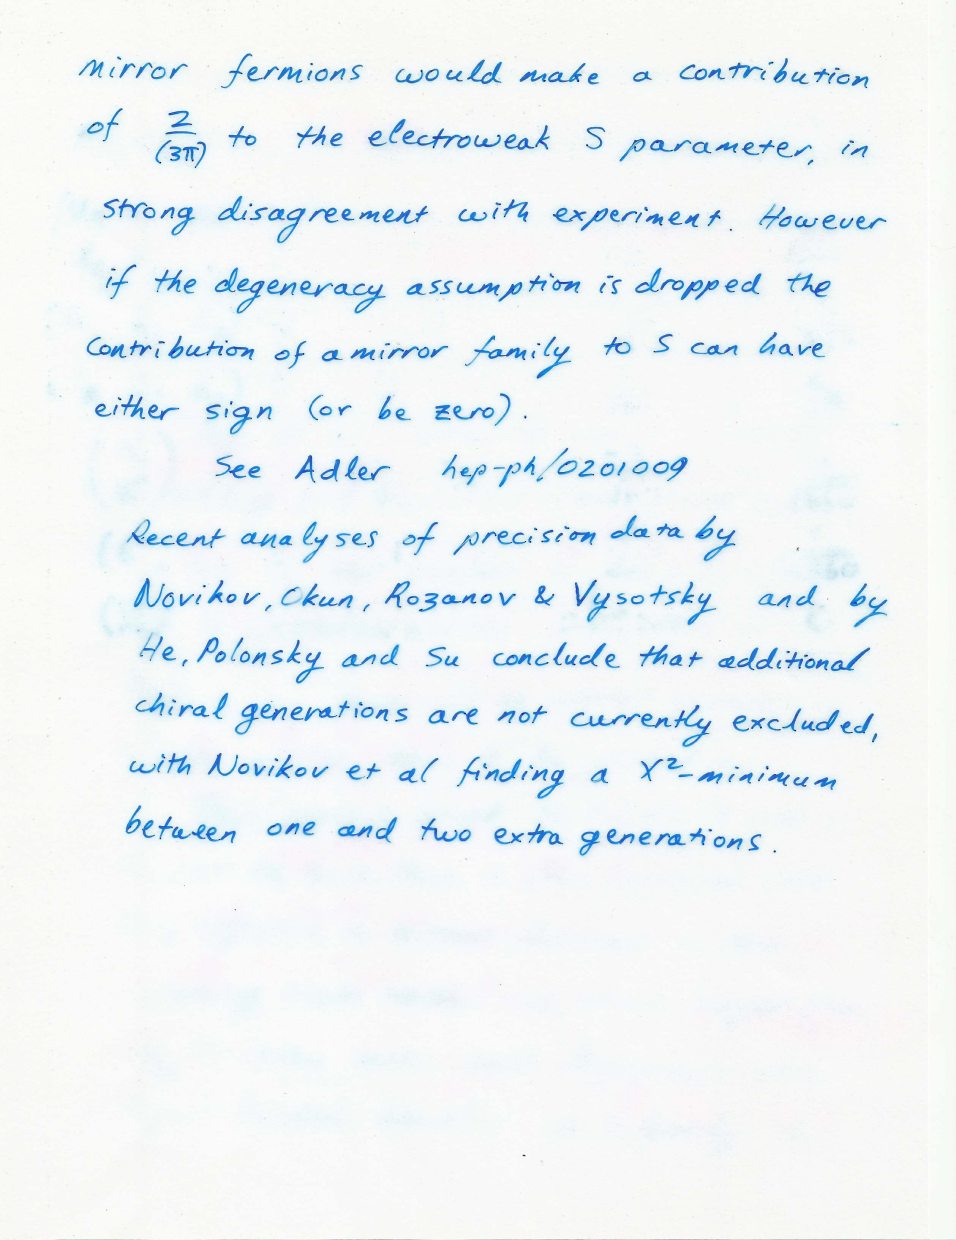 Mirror fermions would make a contribution
of 2/(3π) to the electroweak S parameter, in
strong disagreement with experiment. However
if the degeneracy assumption is dropped the
contribution of a mirror family to S can have
either sign (or be zero).
See Adler hep-ph/0201009
Recent analyses of precision data by
Novikov, Okun, Rozanov & Vysotsky and by
He, Polonsky and Su conclude that additional
chiral generations are not currently excluded,
with Novikov et al finding a χ²-minimum
between one and two extra generations.